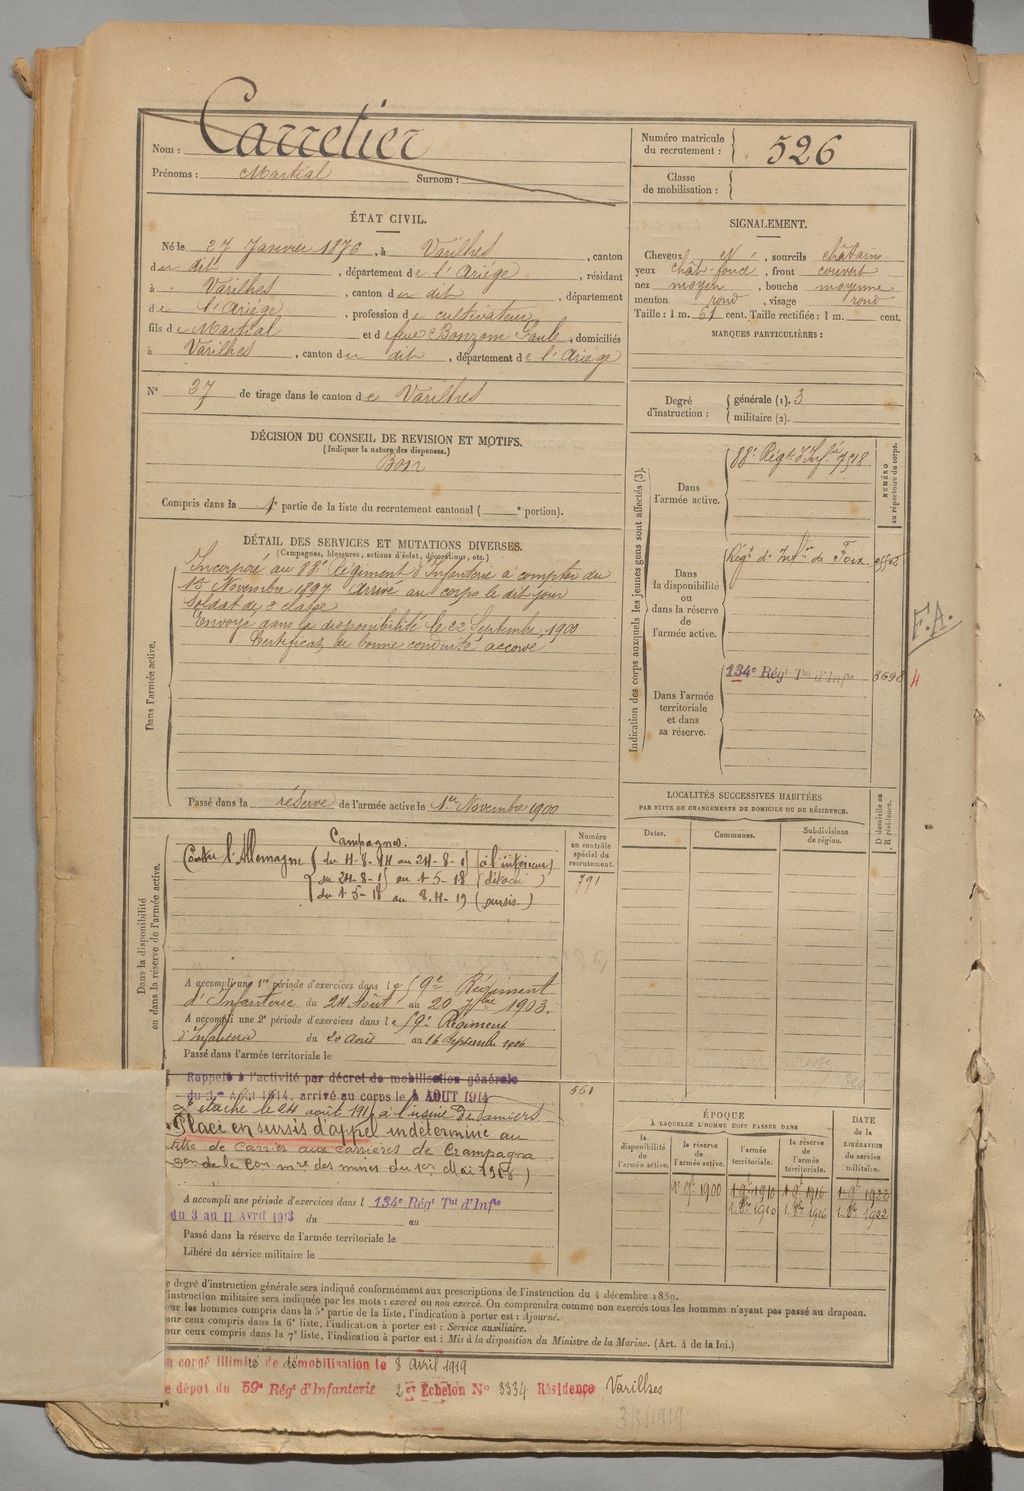 Nom : Carretier
Prénoms : Martial Surnom :
Numéro matricule du recrutement : 526
Classe de mobilisation :
ÉTAT CIVIL.
Né le 27 Janvier 1876, à Varilhes, canton
du dit, département de l'Ariége, résidant
à Varilhes, canton du dit, département
de l'Ariége, profession de cultivateur
fils de Martial et de feue Bonzom Paule, domiciliés
à Varilhes, canton du dit, département de l'Ariége
N° 27 de tirage dans le canton de Varilhes
SIGNALEMENT.
Cheveux, sourcils châtains
yeux chât. foncé, front couvert
nez moyen, bouche moyenne
menton rond, visage rond
Taille : 1 m. 61 cent. Taille rectifiée : 1 m. cent.
MARQUES PARTICULIÈRES :
Degré d'instruction : générale (1). 3
militaire (2).
DÉCISION DU CONSEIL DE REVISION ET MOTIFS.
(Indiquer la nature des dispenses.)
Bon
Compris dans la 1e partie de la liste du recrutement cantonal ( e portion).
DÉTAIL DES SERVICES ET MUTATIONS DIVERSES.
(Campagnes, blessures, actions d'éclat, décorations, etc.)
Dans l'armée active.
Incorporé au 88e Régiment d'Infanterie à compter du
15 Novembre 1897 Arrivé au corps le dit jour
Soldat de 2e classe
Envoyé dans la disponibilité le 22 Septembre 1900
Certificat de bonne conduite accordé
Passé dans la réserve de l'armée active le 1er Novembre 1900
Indication des corps auxquels les jeunes gens sont affectés (3).
NUMÉRO au répertoire du corps.
Dans l'armée active.
88e Régt d'Infie 7518
Dans la disponibilité ou dans la réserve de l'armée active.
Régt d'Infie de Foix
Dans l'armée territoriale et dans sa réserve.
134e Régt Tal d'Infie 3698
4
F.A.
LOCALITÉS SUCCESSIVES HABITÉES
PAR SUITE DE CHANGEMENTS DE DOMICILE OU DE RÉSIDENCE.
Dates. Communes. Subdivisions de région. D domicile ou R résidence.
Dans la disponibilité ou dans la réserve de l'armée active.
Numéro au contrôle spécial du recrutement.
791
Campagnes:
Contre l'Allemagne du 4-8-14 au 24-8-1 (à l'intérieur)
du 24-8-1 au 1-5-18 (détaché)
du 1-5-18 au 8-4-19 (sursis)
A accompli une 1re période d'exercices dans le 59e Régiment
d'Infanterie du 24 Août au 20 7bre 1903.
A accompli une 2e période d'exercices dans le 59e Régiment
d'Infanterie du 20 août au 16 Septembre 1906
Passé dans l'armée territoriale le
Rappelé à l'activité par décret de mobilisation générale
du 1er Août 1914, arrivé au corps le 4 AOUT 1914
561
Détaché le 24 août 191 à l'usine de Pamiers.
Placé en sursis d'appel indéterminé au
titre de Carrier aux carrières de Crampagna
de le Con mre des mines du 1er Mai 1918)
A accompli une période d'exercices dans l 134e Régt Tal d'Infie
du 3 au 11 Avril 1913 du au
Passé dans la réserve de l'armée territoriale le
Libéré du service militaire le
ÉPOQUE
À LAQUELLE L'HOMME DOIT PASSER DANS
la disponibilité de l'armée active. la réserve de l'armée active. l'armée territoriale. la réserve de l'armée territoriale.
DATE de la LIBÉRATION du service militaire.
1900 1910 1916 1922
1. 8bre 1910 1. 8bre 1916 1. 8bre 1922
e degré d'instruction générale sera indiqué conformément aux prescriptions de l'instruction du 4 décembre 1889.
'instruction militaire sera indiquée par les mots : exercé ou non exercé. On comprendra comme non exercés tous les hommes n'ayant pas passé au drapeau.
our les hommes compris dans la 5e partie de la liste, l'indication à porter est : Ajourné.
our ceux compris dans la 6e liste, l'indication à porter est : Service auxiliaire.
our ceux compris dans la 7e liste, l'indication à porter est : Mis à la disposition du Ministre de la Marine. (Art. 4 de la loi.)
n congé illimité de démobilisation le 8 Avril 1919
e dépot du 59e Régt d'Infanterie 2e Echelon N° 3334 Résidence Varilhes